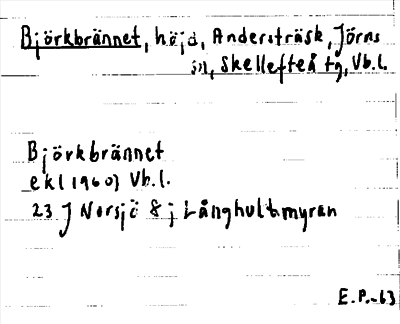 Björkbrännet, höjd, Andersträsk, Jörns
sn, Skellefteå tg, Vb.l.
Björkbrännet
ekl (1960) Vb.l.
23 J Norsjö 8 j Långhultmyran
E.P.-63